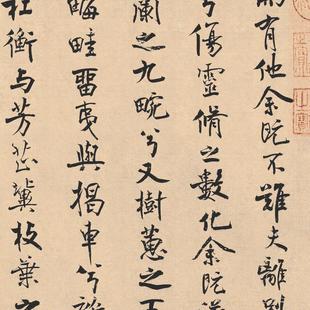 而有他余既不難夫離別
兮傷靈脩之數化余既滋
蘭之九畹兮又樹蕙之百
畮畦畱夷與揭車兮雜
杜衡与芳芷冀枝葉之